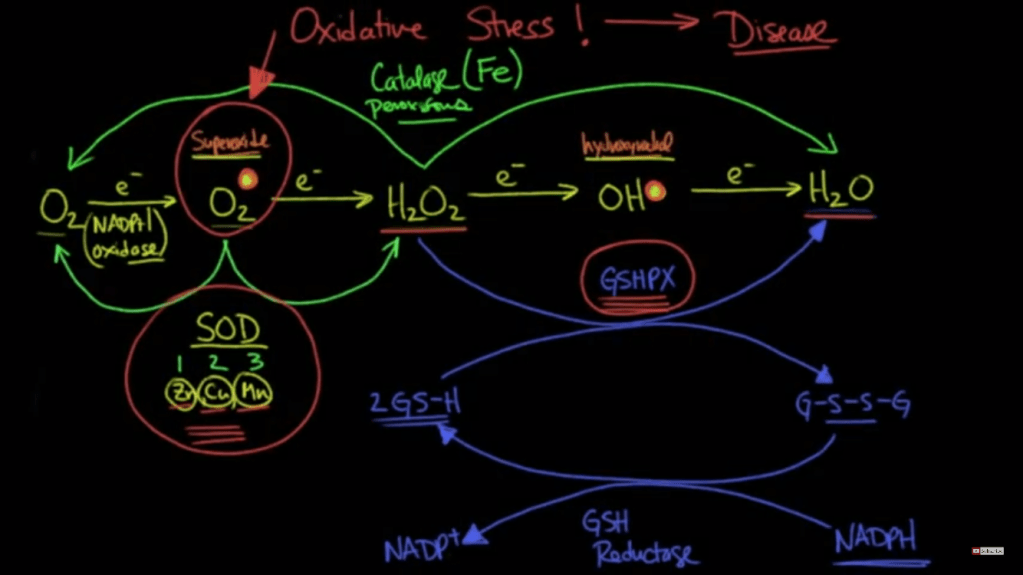 Oxidative Stress ! → Disease
Catalase (Fe)
peroxisomes
Superoxide
hydroxyradical
O₂ e⁻ O₂ e⁻ H₂O₂ e⁻ OH e⁻ H₂O
(NADPH
oxidase)
GSHPX
SOD
1 2 3
Zn, Cu, Mn
2GS-H G-S-S-G
GSH
Reductase
NADP⁺ NADPH